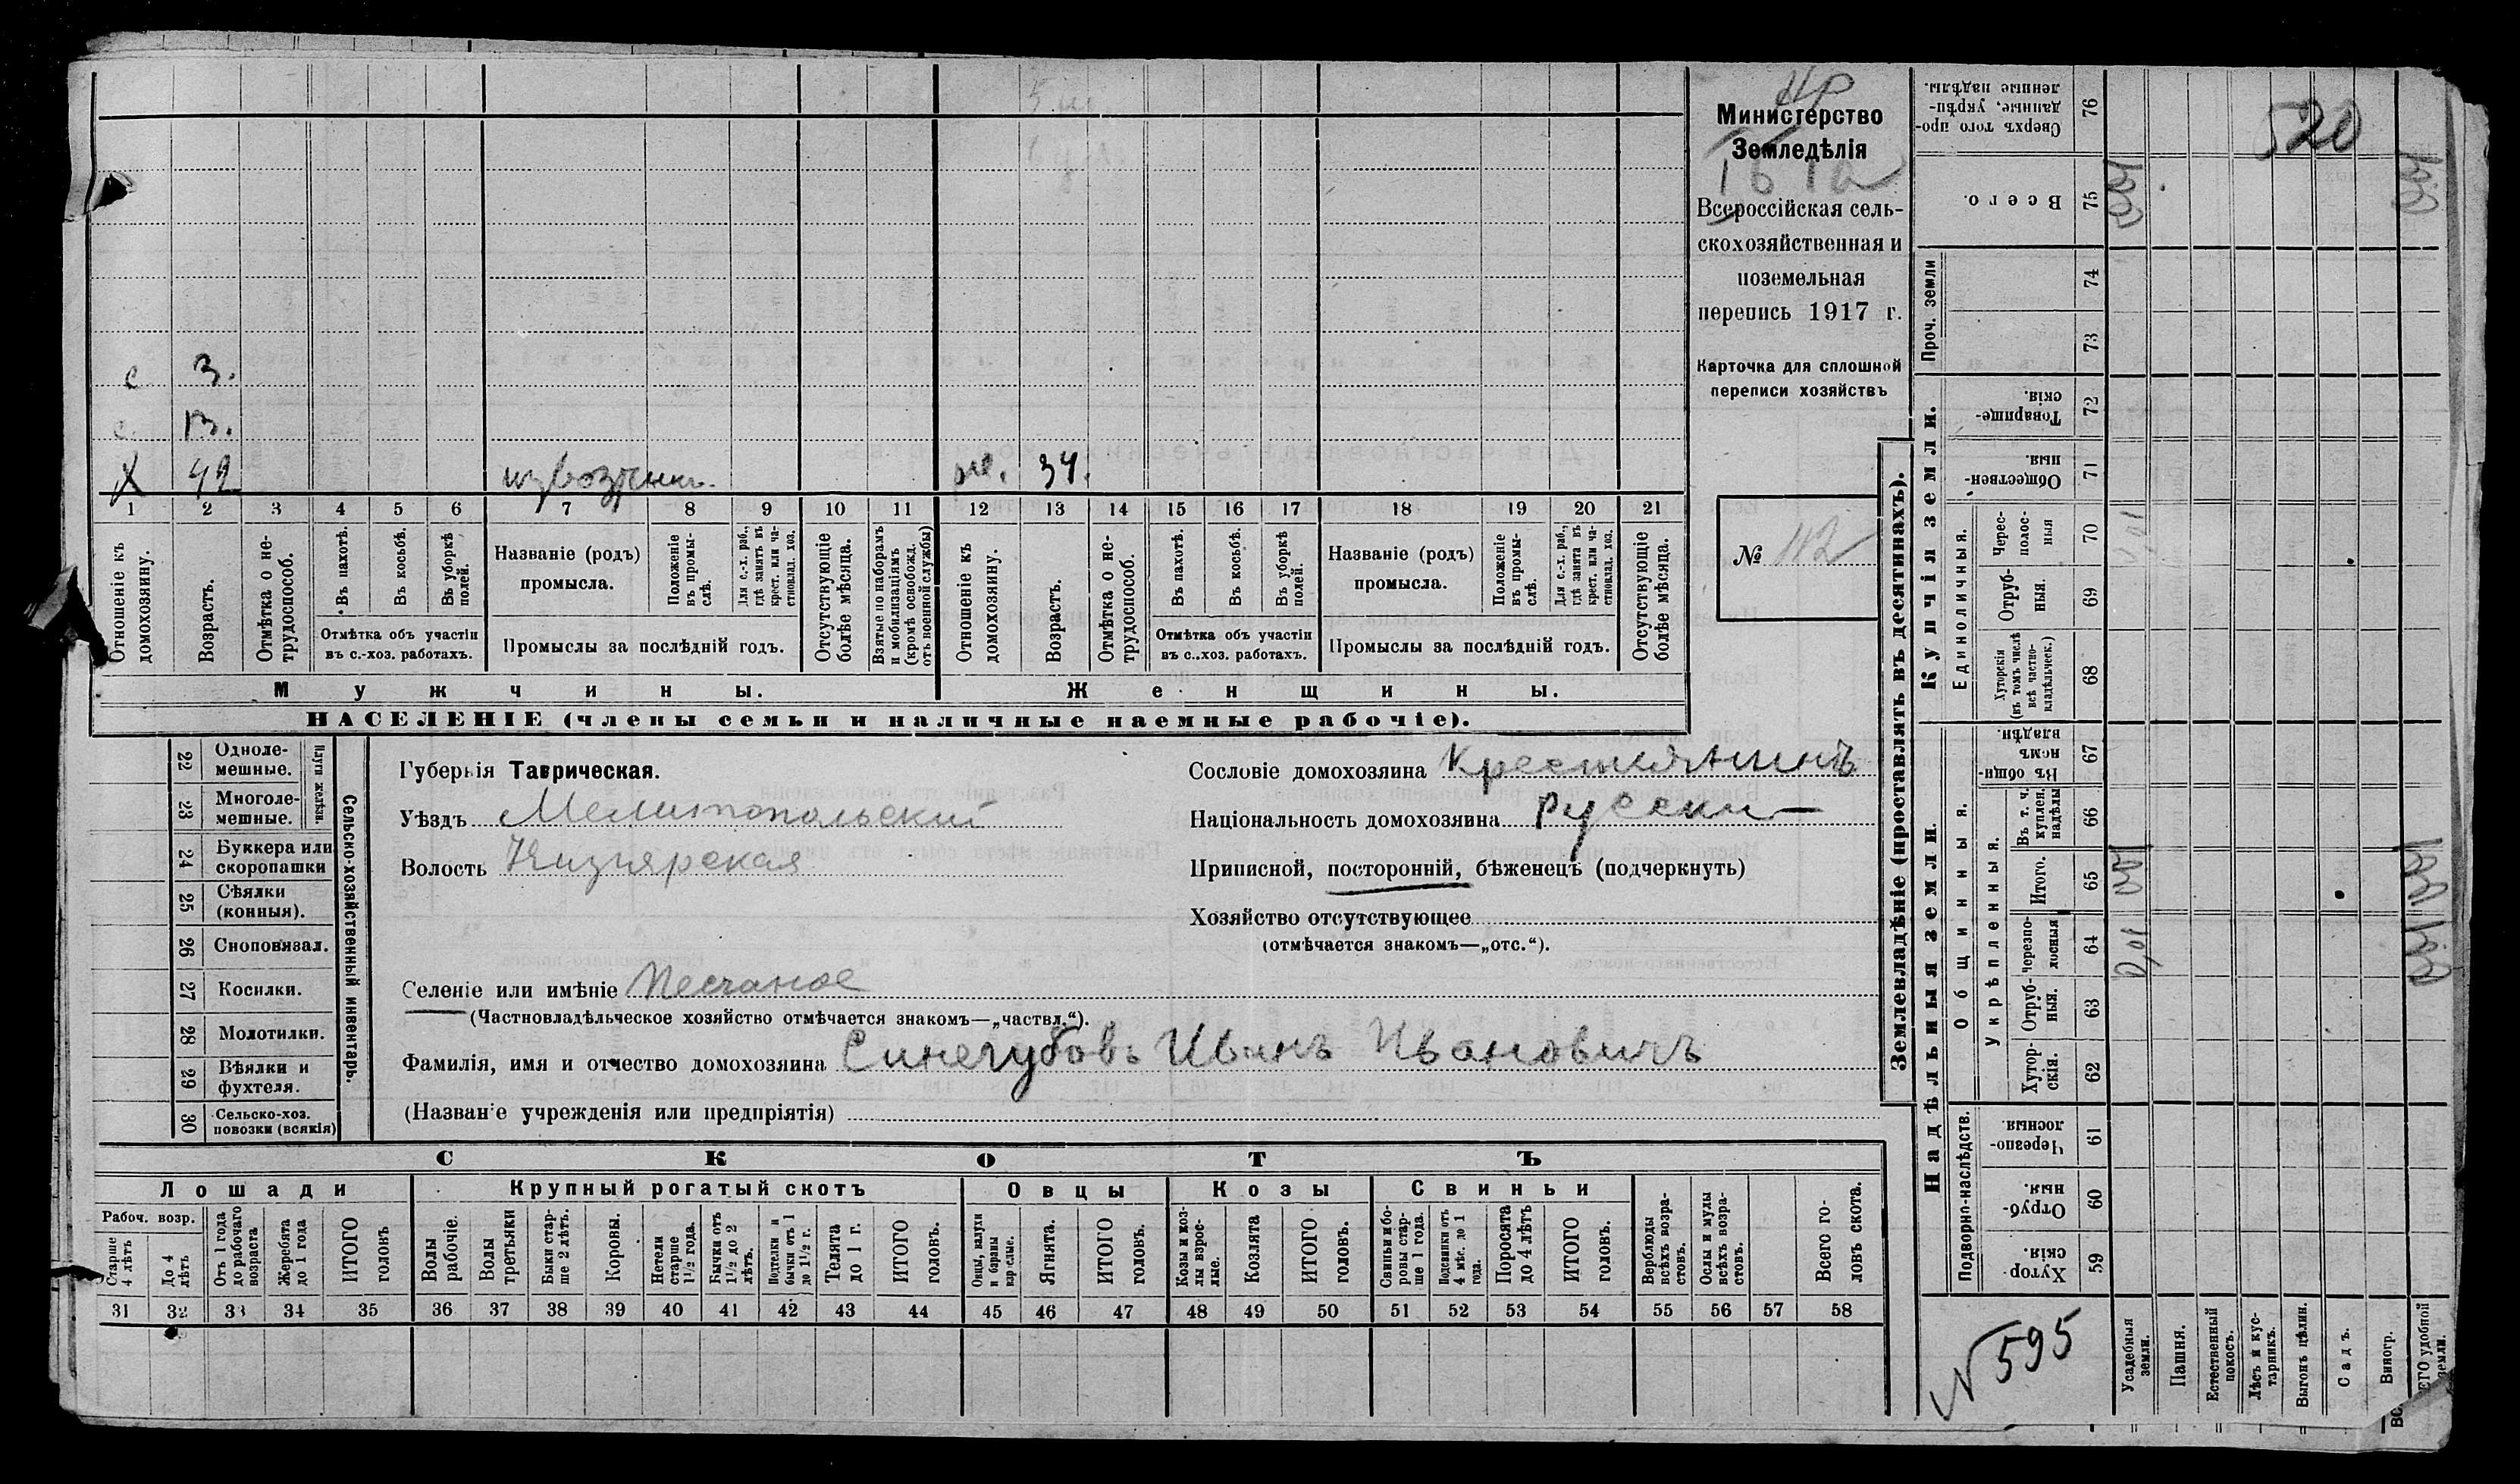 Министерство
Земледѣлія
Всероссійская сель-
скохозяйственная и
поземельная
перепись 1917 г.
Карточка для сплошной
переписи хозяйствъ
№ 112
520
с 3.
с. 13.
Х 42 извозчикъ. же. 34.
1 2 3 4 5 6 7 8 9 10 11 12 13 14 15 16 17 18 19 20 21
Отношеніе къ домохозяину.
Возрастъ.
Отмѣтка о не-трудоспособ.
Въ пахотѣ.
Въ косьбѣ.
Въ уборкѣ полей.
Отмѣтка объ участіи въ с.-хоз. работахъ.
Названіе (родъ) промысла.
Положеніе въ промы-слѣ.
Для с.-х. раб., гдѣ занятъ въ крест. или ча-стновлад. хоз.
Промыслы за послѣдній годъ.
Отсутствующіе болѣе мѣсяца.
Взятые по наборамъ и мобилизаціямъ (кромѣ освобожд. отъ военной службы)
Отношеніе къ домохозяину.
Возрастъ.
Отмѣтка о не-трудоспособ.
Въ пахотѣ.
Въ косьбѣ.
Въ уборкѣ полей.
Отмѣтка объ участіи въ с..хоз. работахъ.
Названіе (родъ) промысла.
Положеніе въ промы-слѣ.
Для с.-х. раб., гдѣ занята въ крест. или ча-стновлад. хоз.
Промыслы за послѣдній годъ.
Отсутствующіе болѣе мѣсяца.
Мужчины. Женщины.
НАСЕЛЕНІЕ (члены семьи и наличные наемные рабочіе).
22 Одноле-мешные.
23 Многоле-мешные.
Плуги желѣзн.
24 Буккера или скоропашки
25 Сѣялки (конныя).
26 Сноповязал.
27 Косилки.
28 Молотилки.
29 Вѣялки и фухтеля.
30 Сельско-хоз. повозки (всякія)
Сельско-хозяйственный инвентарь.
Губернія Таврическая.
Уѣздъ Мелитопольский
Волость Кизиярская
Сословіе домохозяина Крестянинъ
Національность домохозяина Русски
Приписной, посторонній, бѣженецъ (подчеркнуть)
Хозяйство отсутствующее
(отмѣчается знакомъ—„отс.“).
Селеніе или имѣніе Песчаное
(Частновладѣльческое хозяйство отмѣчается знакомъ—„частвл.“).
Фамилія, имя и отчество домохозяина Синегубовъ Иванъ Ивановичъ
(Названіе учрежденія или предпріятія)
СКОТЪ
Лошади Крупный рогатый скотъ Овцы Козы Свиньи
Рабоч. возр.
Старше 4 лѣтъ
До 4 лѣтъ
Отъ 1 года до рабочаго возраста
Жеребята до 1 года
ИТОГО головъ
Волы рабочіе.
Волы третьяки
Быки стар-ше 2 лѣтъ.
Коровы.
Нетели старше 1½ года.
Бычки отъ 1½ до 2 лѣтъ.
Подтелки и бычки отъ 1 до 1½ г.
Телята до 1 г.
ИТОГО головъ.
Овцы, валухи и бараны взрослые.
Ягнята.
ИТОГО головъ.
Козы и коз-лы взрос-лые.
Козлята
ИТОГО головъ.
Свиньи и бо-ровы стар-ше 1 года.
Подсвинки отъ 4 мѣс. до 1 года.
Поросята до 4 лѣтъ
ИТОГО головъ.
Верблюды всѣхъ возра-стовъ.
Ослы и мулы всѣхъ возра-стовъ.
Всего го-ловъ скота.
31 32 33 34 35 36 37 38 39 40 41 42 43 44 45 46 47 48 49 50 51 52 53 54 55 56 57 58
Землевладѣніе (проставлять въ десятинахъ).
Сверхъ того про-данные, укрѣп-ленные надѣлы. 76
Всего. 75
Проч. земли 74
73
Купчія земли.
Товарище-скія. 72
Обществен-ныя. 71
Единоличныя.
Черес-полос-ныя 70
Отруб-ныя. 69
Хуторскія (въ томъ числѣ всѣ частно-владѣльческ.) 68
Надѣльныя земли.
Общинныя.
Въ общи-номъ владѣн. 67
Укрѣпленныя.
Въ т. ч. куплен. надѣлы 66
Итого. 65
Черезпо-лосныя 64
0,01
Отруб-ныя. 63
Хутор-скія. 62
Подворно-наслѣдств.
Черезпо-лосныя. 61
Отруб-ныя. 60
Хутор-скія. 59
N 595
Усадебныя земли.
Пашня.
Естественный покосъ.
Лѣсъ и кус-тарникъ.
Выгонъ цѣлин.
Садъ.
Виногр.
ЕГО удобной земли.